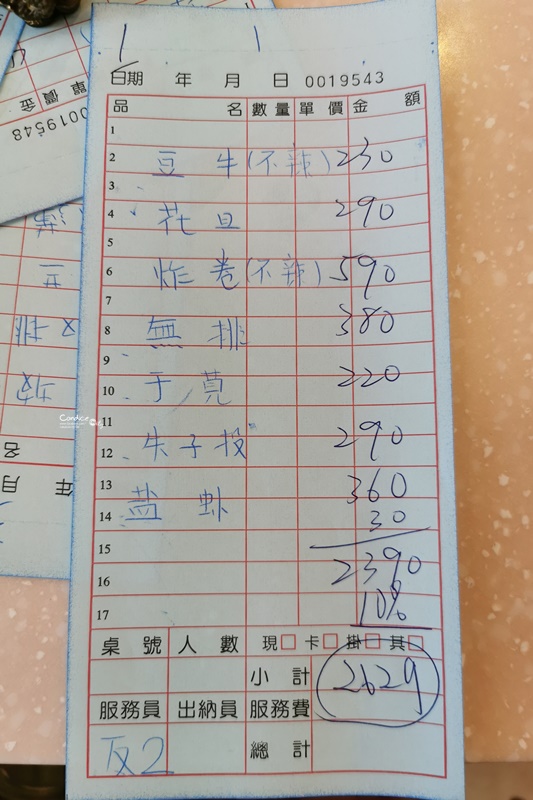 1 1
日期 年 月 日 0019543
品 名 數量 單價 金 額
1
2 豆 牛(不辣) 230
3
4 花 旦 290
5
6 炸 卷(不辣) 590
7
8 無 排 380
9
10 于 莧 220
11
12 朱子投 290
13 360
14 盐 虾 30
15 2390
16
17 10%
桌號 人數 現□ 卡□ 掛□ 其□
小計 2629
服務員 出納員 服務費
反2 總計
0019548
單價 金
年 月
名